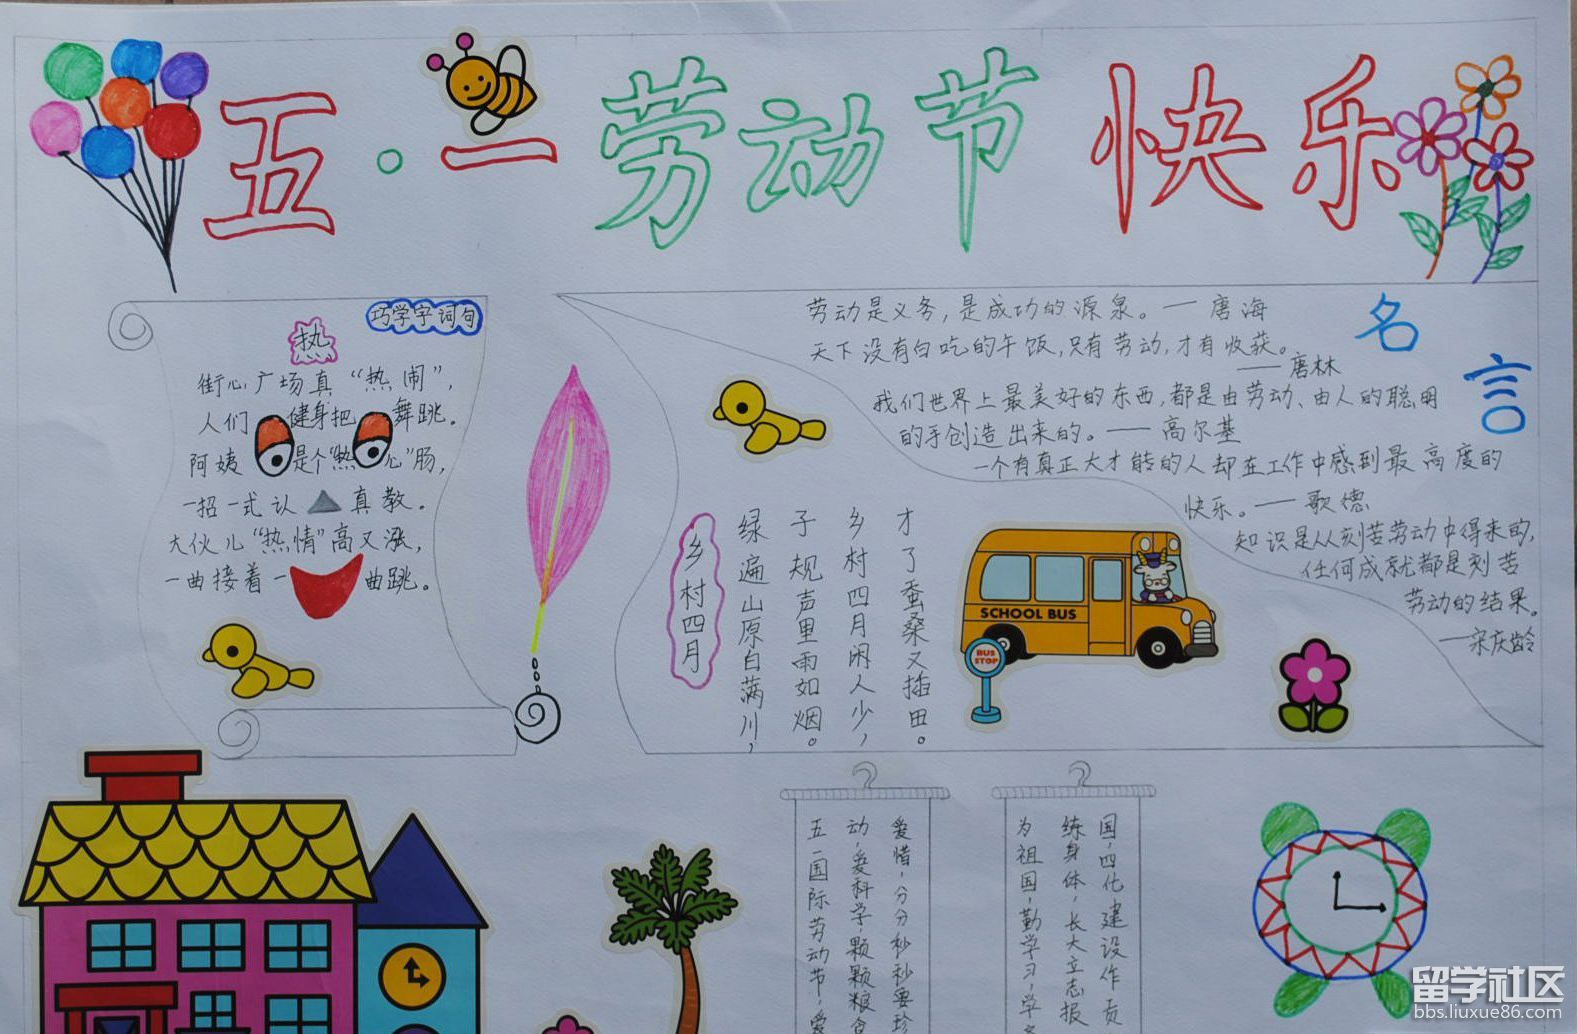 五·一劳动节快乐
巧学字词句
热
街心广场真“热闹”，
人们健身把舞跳。
阿姨是个“热心”肠，
一招一式认真教。
大伙儿“热情”高又涨，
一曲接着一曲跳。
名言
劳动是义务，是成功的源泉。——唐海
天下没有白吃的午饭，只有劳动，才有收获。
——唐林
我们世界上最美好的东西，都是由劳动、由人的聪明
的手创造出来的。——高尔基
一个有真正大才能的人却在工作中感到最高度的
快乐。——歌德
知识是从刻苦劳动中得来的，
任何成就都是刻苦
劳动的结果。
——宋庆龄
乡村四月
绿遍山原白满川，
子规声里雨如烟。
乡村四月闲人少，
才了蚕桑又插田。
SCHOOL BUS
BUS
STOP
五一国际劳动节，爱
动，爱科学，颗颗粮食
爱惜，分分秒秒要珍
为祖国，勤学习，学
练身体，长大立志报
国，四化建设作贡
留学社区
bbs.liuxue86.com